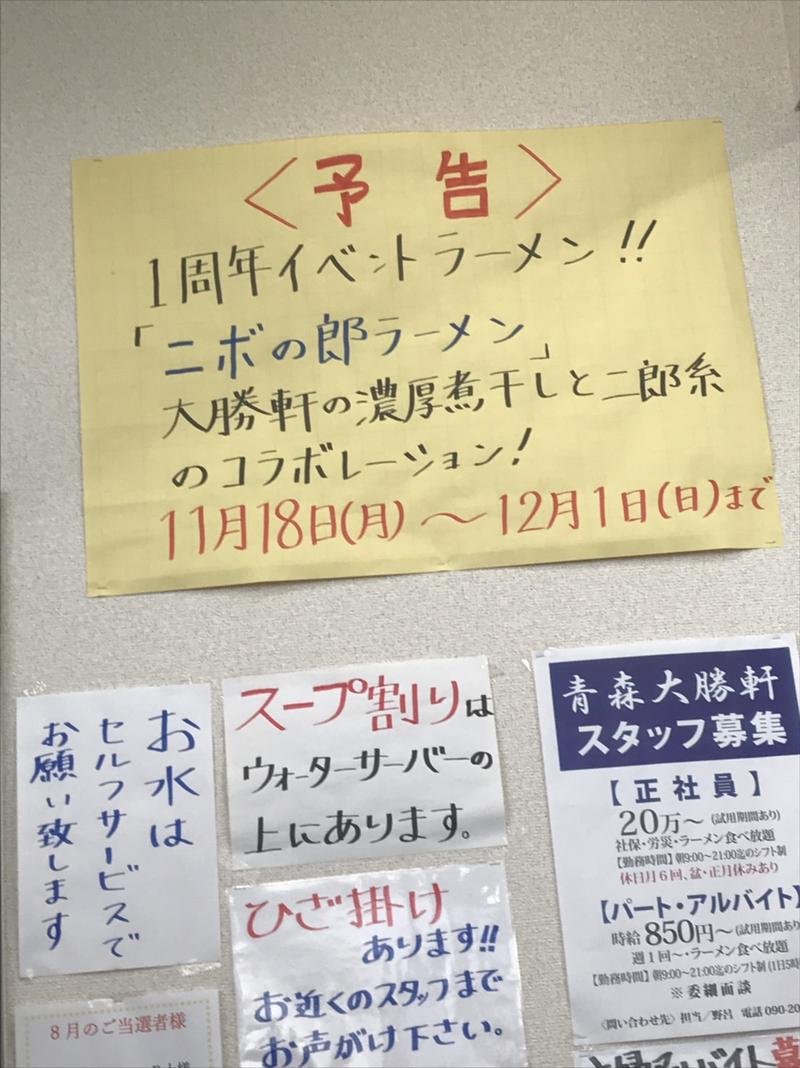 〈予告〉
1周年イベントラーメン!!
「ニボの郎ラーメン」
大勝軒の濃厚煮干しと二郎系
のコラボレーション!
11月18日(月)〜12月1日(日)まで
お水は
セルフサービスで
お願い致します
スープ割りは
ウォーターサーバーの
上にあります。
ひざ掛け
あります!!
お近くのスタッフまで
お声がけ下さい。
8月のご当選者様
青森大勝軒
スタッフ募集
【正社員】
20万〜(試用期間あり)
社保・労災・ラーメン食べ放題
【勤務時間】朝9:00~21:00迄のシフト制
休日月6回、盆・正月休みあり
【パート・アルバイト】
時給850円〜(試用期間あり
週1回〜・ラーメン食べ放題
【勤務時間】朝9:00~21:00迄のシフト制(1日5時
※委細面談
〈問い合わせ先〉担当/野呂 電話090-20